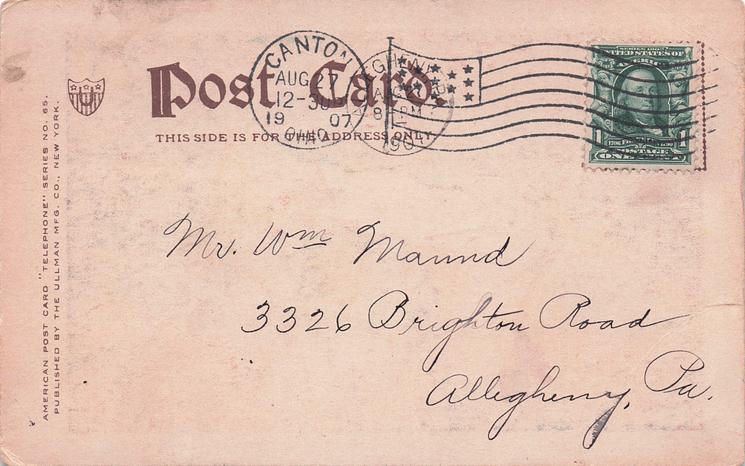 Post Card.
THIS SIDE IS FOR THE ADDRESS ONLY.
CANTON
AUG 27
12-30P
1907
OHIO
1907
SERIES 1902
UNITED STATES OF
AMERICA
1 1
POSTAGE
ONE
Mr. Wm Maund
3326 Brighton Road
Allegheny, Pa.
AMERICAN POST CARD "TELEPHONE" SERIES NO. 65.
PUBLISHED BY THE ULLMAN MFG. CO., NEW YORK.